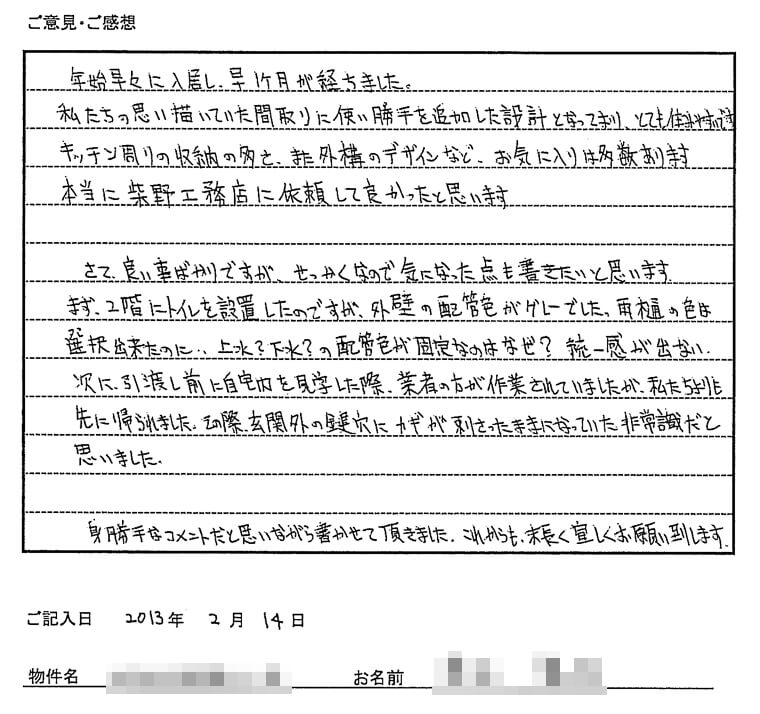 ご意見・ご感想
年始早々に入居し、早1ケ月が経ちました。
私たちの思い描いていた間取りに使い勝手を追加した設計となっており、とても住みやすいです
キッチン周りの収納の多さ、また外構のデザインなど、お気に入りは多数あります
本当に柴野工務店に依頼して良かったと思います
さて、良い事ばかりですが、せっかくなので気になった点も書きたいと思います。
まず、2階にトイレを設置したのですが、外壁の配管色がグレーでした。雨樋の色は
選択出来たのに‥上水?下水?の配管色が固定なのはなぜ?統一感が出ない。
次に、引渡し前に自宅内を見学した際、業者の方が作業されていましたが、私たちよりも
先に帰られました。その際、玄関外の鍵穴にカギが刺さったままになっていた非常識だと
思いました。
身勝手なコメントだと思いながら書かせて頂きました。これからも、末長く宜しくお願い致します。
ご記入日 2013年 2月 14日
物件名 お名前